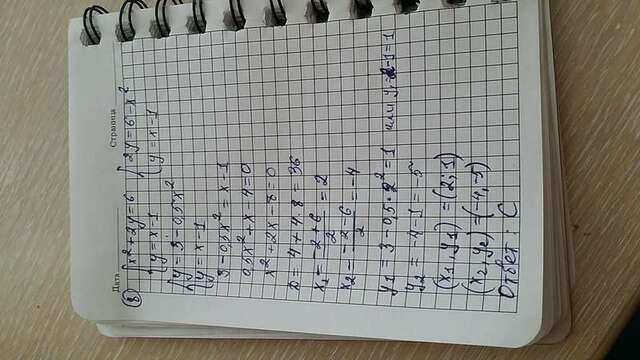 Дата Страница
8 { x² + 2y = 6 { 2y = 6 - x²
{ y = x - 1 { y = x - 1
{ y = 3 - 0,5x²
{ y = x - 1
3 - 0,5x² = x - 1
0,5x² + x - 4 = 0
x² + 2x - 8 = 0
D = 4 + 4·8 = 36
x₁ = (-2+6)/2 = 2
x₂ = (-2-6)/2 = -4
y₁ = 3 - 0,5·2² = 1 или y₁ = 2-1=1
y₂ = -4-1 = -5
(x₁, y₁) = (2; 1)
(x₂, y₂) = (-4, -5)
Ответ: C